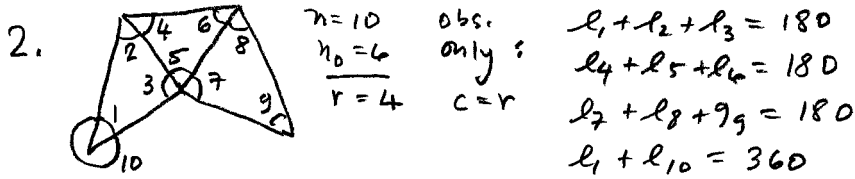 2.
4
6
2
5
8
3
7
1
9
10
n = 10
n₀ = 6
r = 4
obs.
only :
c = r
l₁ + l₂ + l₃ = 180
l₄ + l₅ + l₆ = 180
l₇ + l₈ + 9₉ = 180
l₁ + l₁₀ = 360